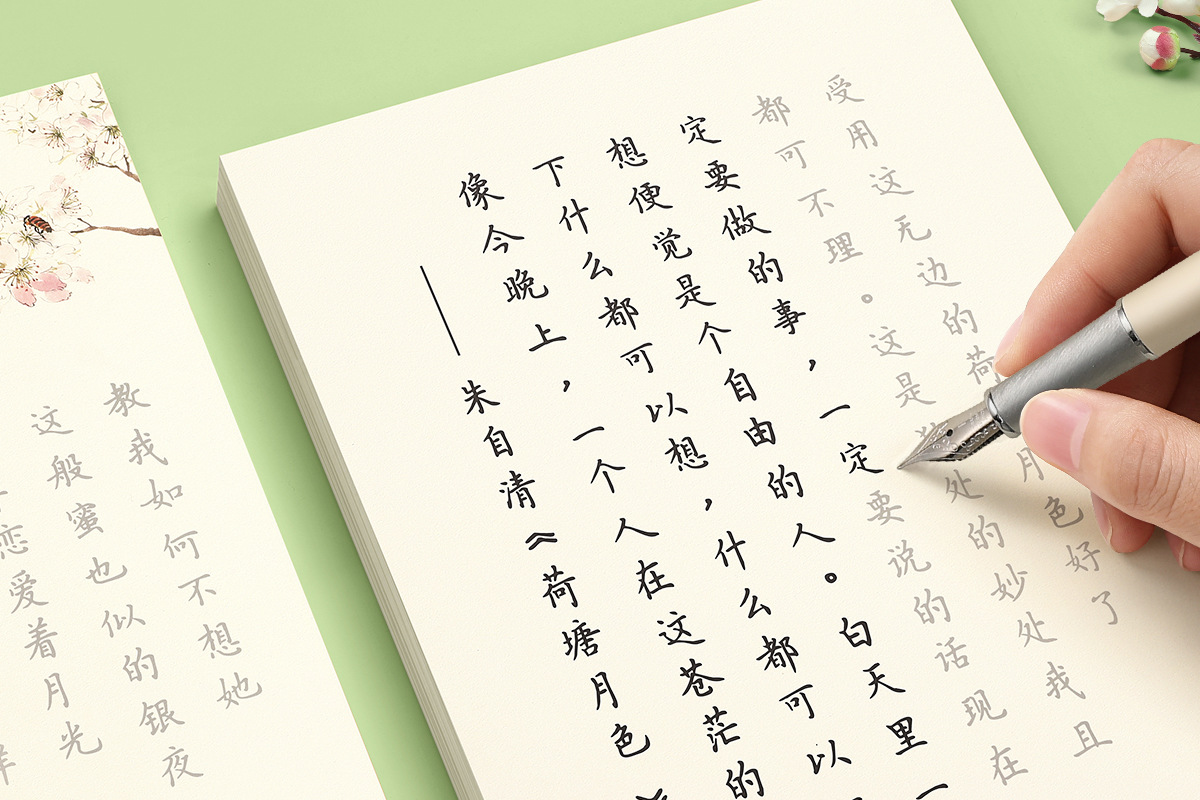 恋爱着月光
这般蜜也似的银夜
教我如何不想她
——朱自清《荷塘月色》
像今晚上，一个人在这苍茫的
下什么都可以想，什么都可以
想便觉是个自由的人。白天里一
定要做的事，一定要说的话现在
都可不理。这是处的妙处我且
受用这无边的荷月色好了